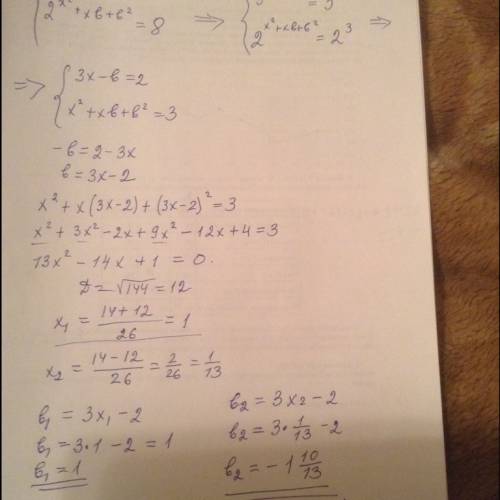 { 2^(x²+xв+в²) = 8 => { 2^(x²+xв+в²) = 2³ =>
=> { 3x-в=2
x²+xв+в²=3
-в=2-3x
в=3x-2
x²+x(3x-2)+(3x-2)²=3
x²+3x²-2x+9x²-12x+4=3
13x²-14x+1=0.
D=√144=12
x₁ = (14+12)/26 = 1
x₂ = (14-12)/26 = 2/26 = 1/13
в₁ = 3x₁-2
в₁=3·1-2=1
в₁=1
в₂ = 3x₂-2
в₂=3·1/13-2
в₂=-1 10/13